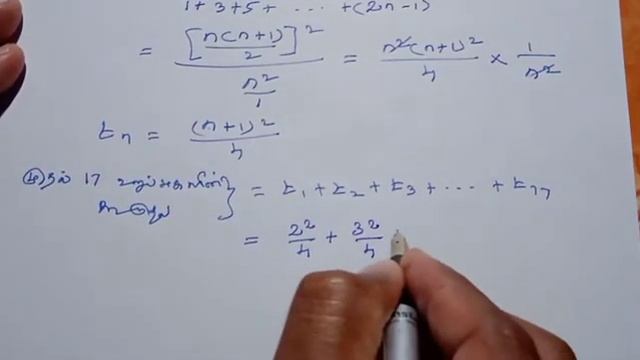 1 + 3 + 5 + ... + (2n-1)
= [n(n+1)/2]² / (n²/1) = n²(n+1)²/4 × 1/n²
tₙ = (n+1)²/4
முதல் 17 உறுப்புகளின் கூடுதல் } = t₁ + t₂ + t₃ + ... + t₁₇
= 2²/4 + 3²/4